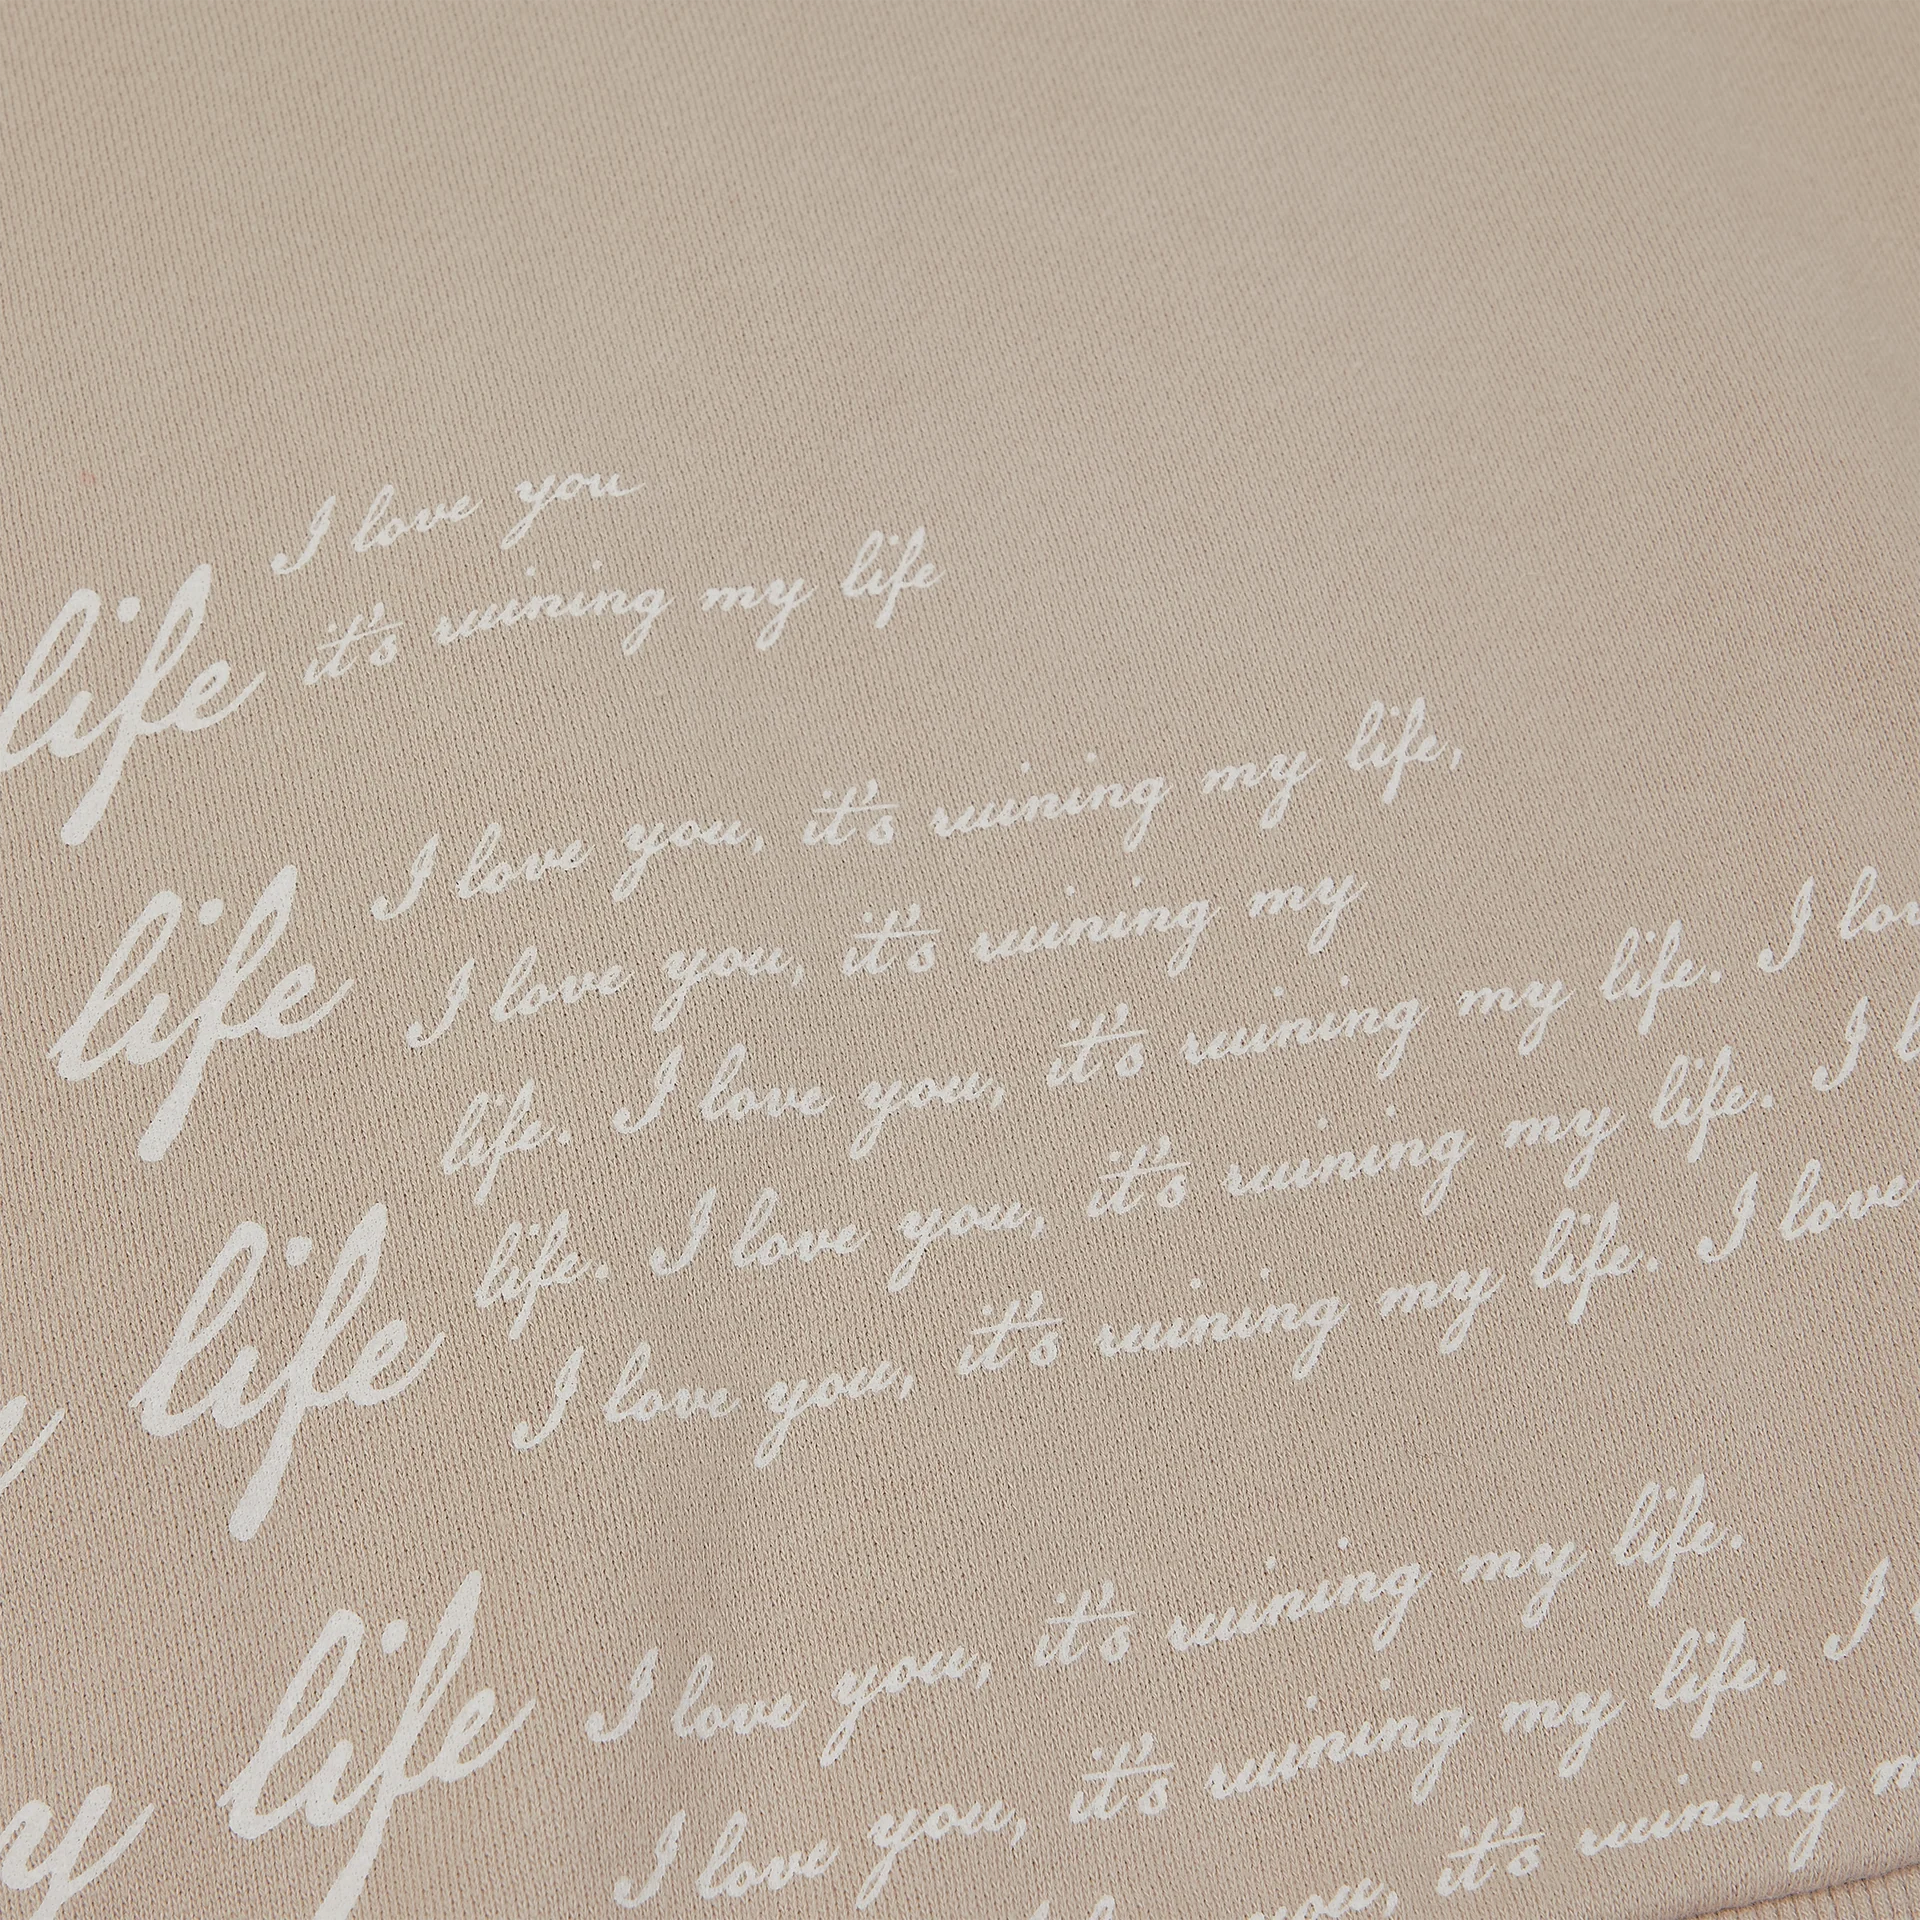 I love you
life it's ruining my life
I love you, it's ruining my life,
life I love you, it's ruining my
life. I love you, it's ruining my life. I
life. I love you, it's ruining my life. I
life I love you, it's ruining my life. I love
I love you, it's ruining my life.
life I love you, it's ruining my life. I
you, it's ruining